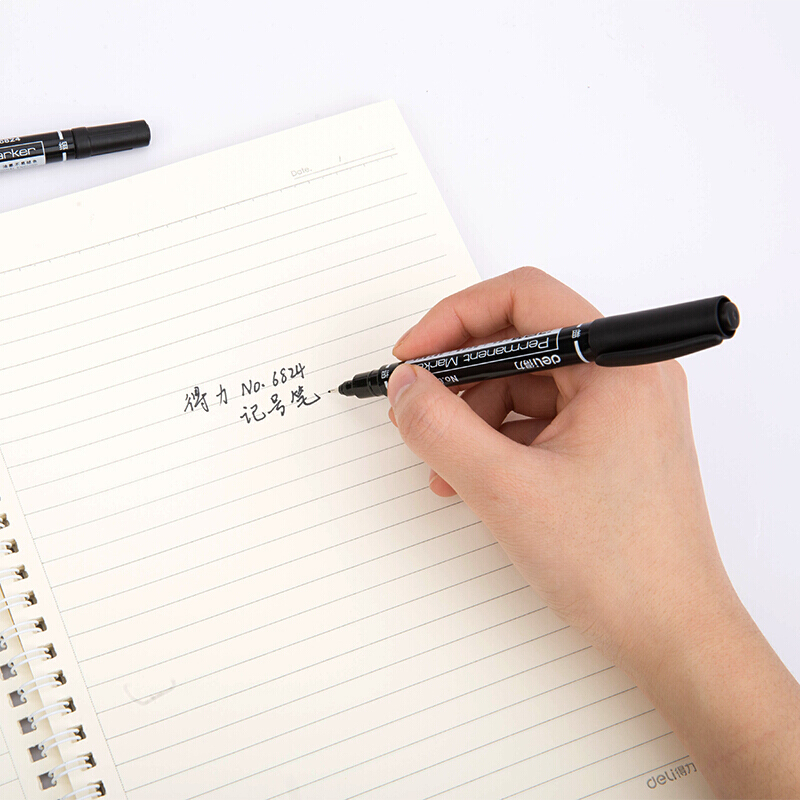 6824
arker
Date. /
得力 No. 6824
记号笔
deli得力
Permanent Marke
No.
deli得力